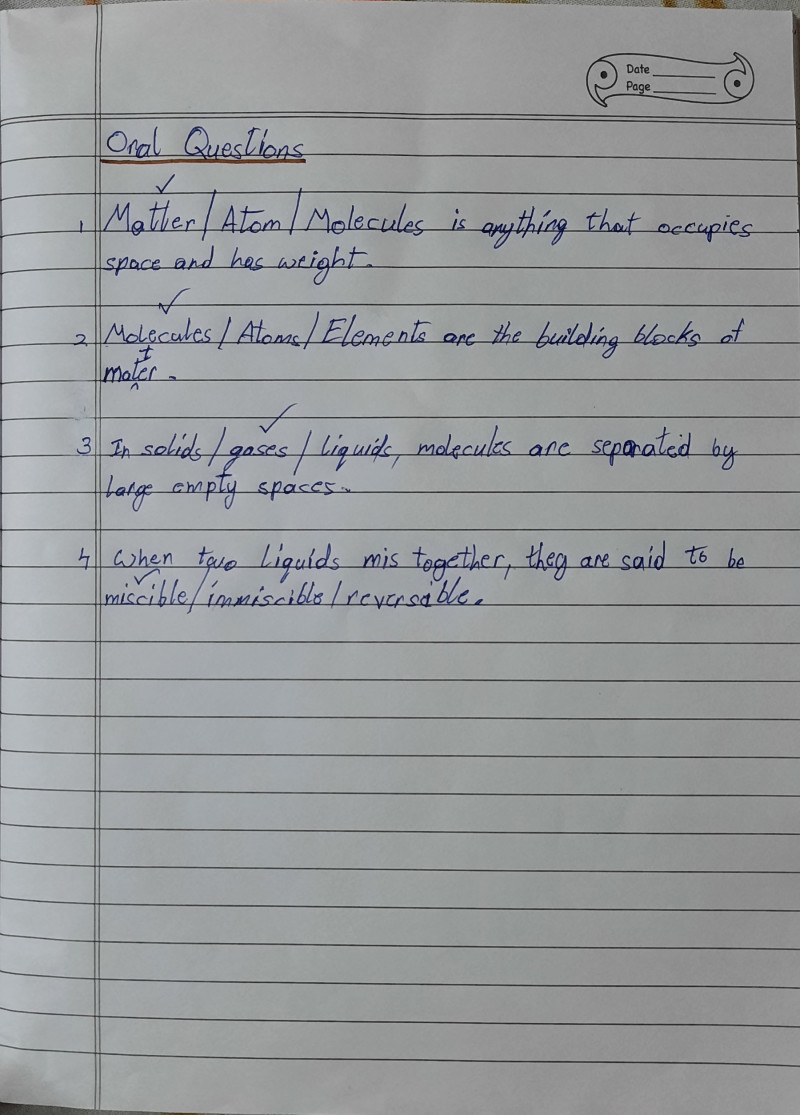 Date
Page
Oral Questions
✓
1 Matter / Atom / Molecules is anything that occupies
space and has weight.
✓
2 Molecules / Atoms / Elements are the building blocks of
matter.
✓
3 In solids / gases / liquids, molecules are separated by
large empty spaces.
4 When two liquids mis together, they are said to be
✓
miscible / immiscible / reversable.